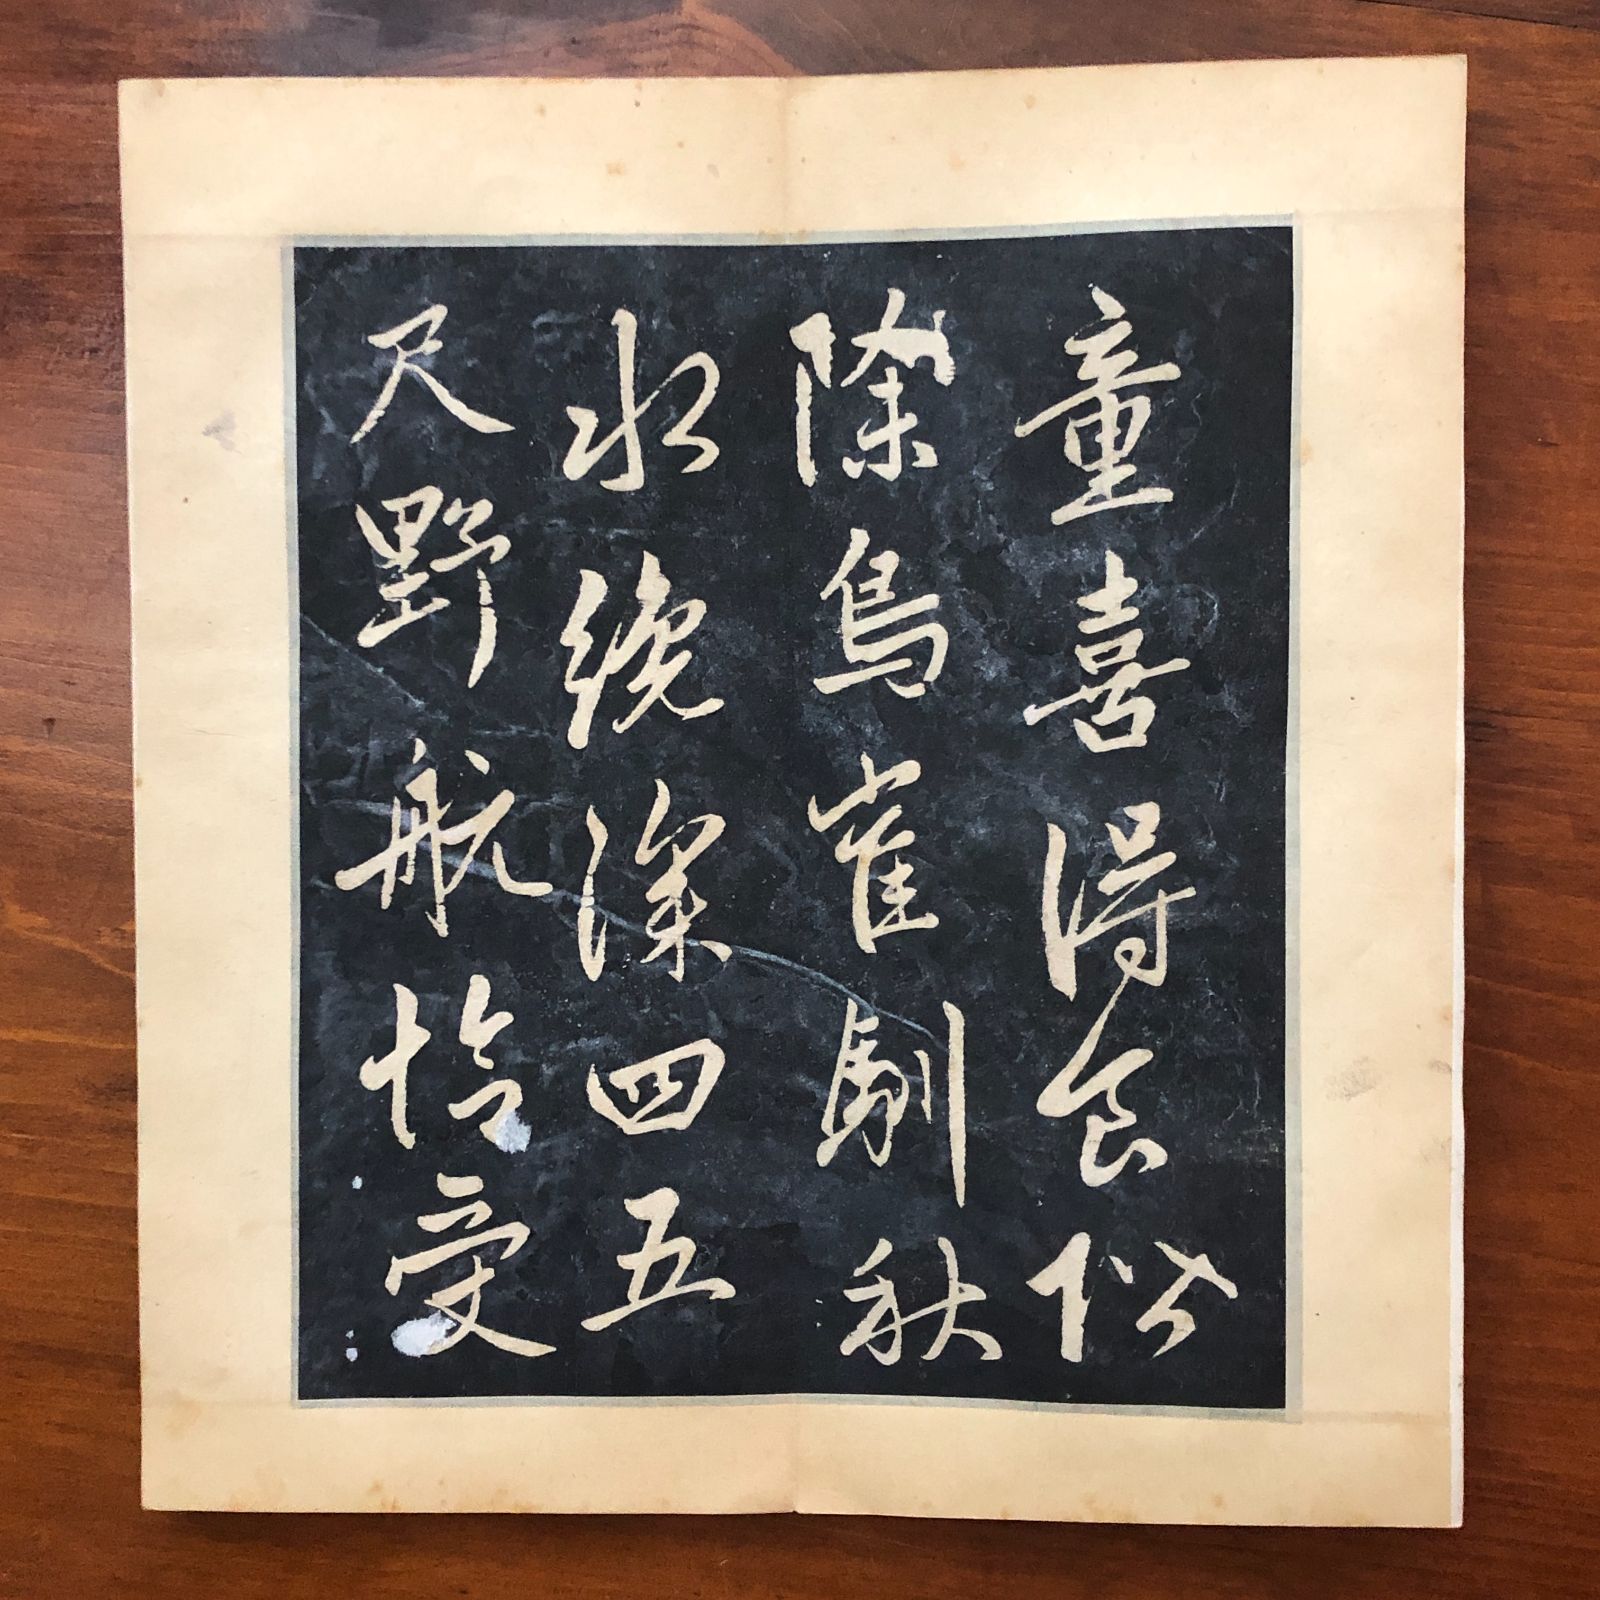 童喜得食階
除鳥雀馴秋
水纔深四五
尺野航恰受